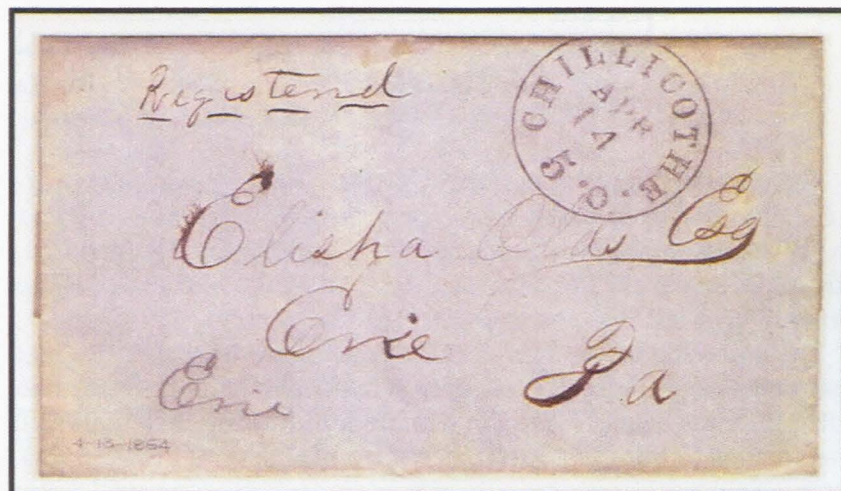 Registered
CHILLICOTHE. O.
APR
14
5
Elisha Olds Esq
Erie
Erie Pa
4-15-1854